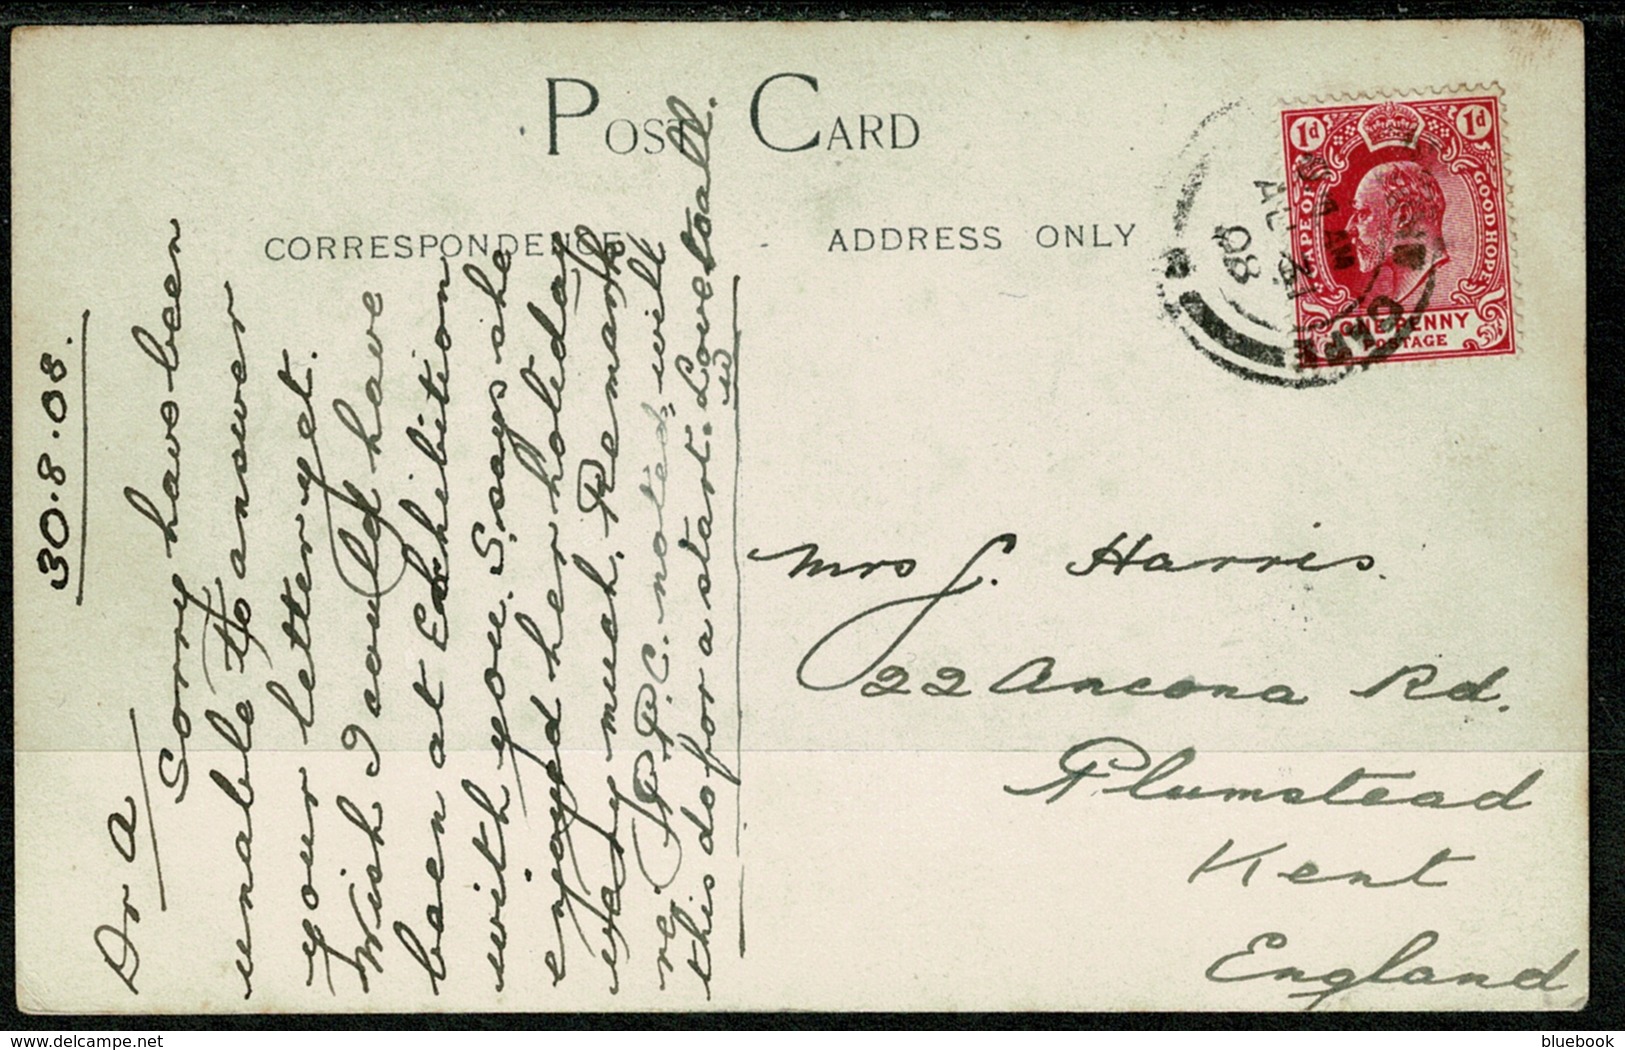 POST CARD
CORRESPONDENCE
ADDRESS ONLY
30.8.08.
Dr A
Sorry have been
unable to answer
your letter yet.
Wish I could have
been at Exhibition
with you. S. says she
enjoyed her holiday
very much. Remark
re P.P.C. noted: will
this do for a start. Love to all.
W
Mrs J. Harris.
22 Ancona Rd.
Plumstead
Kent
England
1d 1d
CAPE OF GOOD HOPE
ONE PENNY
POSTAGE
AM
08
delcampe.net
bluebook